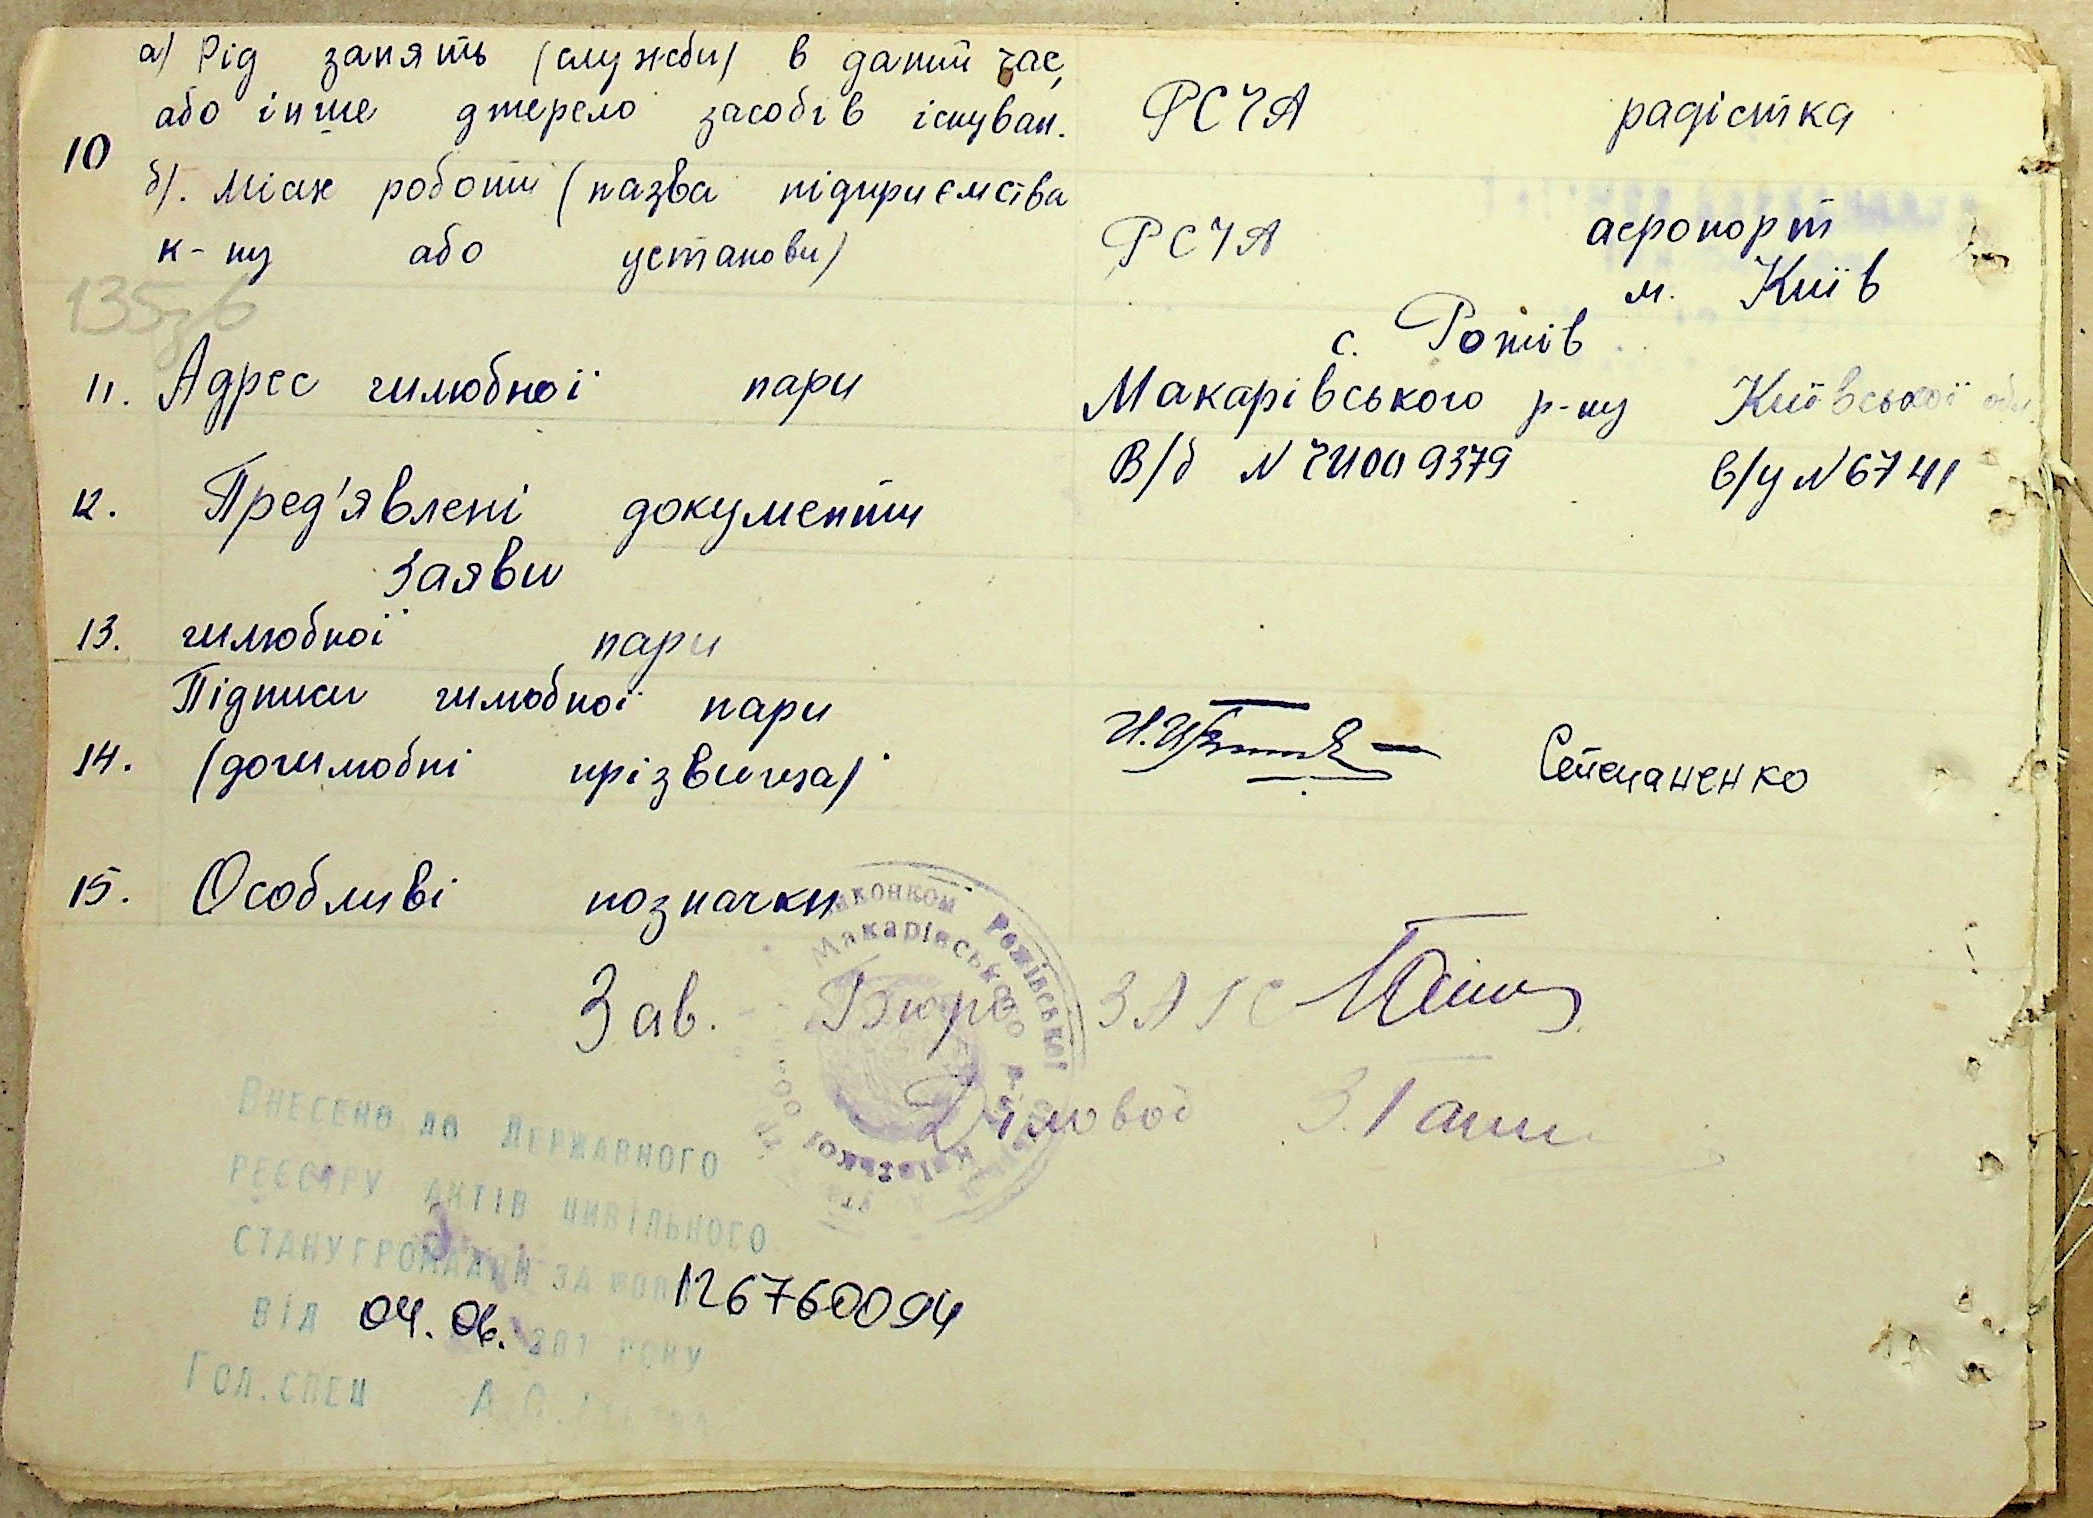 а) Рід занять (служби) в даний час,
або інше джерело засобів існуван.
РСЧА радістка
10
б). Місце роботи (назва підприємства
к-пу або установи)
РСЧА аеропорт
м. Київ
135зб
с. Рожів
11. Адрес шлюбної пари
Макарівського р-ну Київської обл
12. Пред'явлені документи
В/б № 9379 в/у № 6741
Заяви
13. шлюбної пари
Підписи шлюбної пари
14. (дошлюбні прізвища)
Степаненко
15. Особливі позначки
Виконком Рожівської
Макарівського р-ну
Київської
Зав. Бюро ЗАГС
З. Ганн
Внесено до Державного
реєстру актів цивільного
стану громадян за №
126760094
від 04.06. 201 року
Гол. спец А.